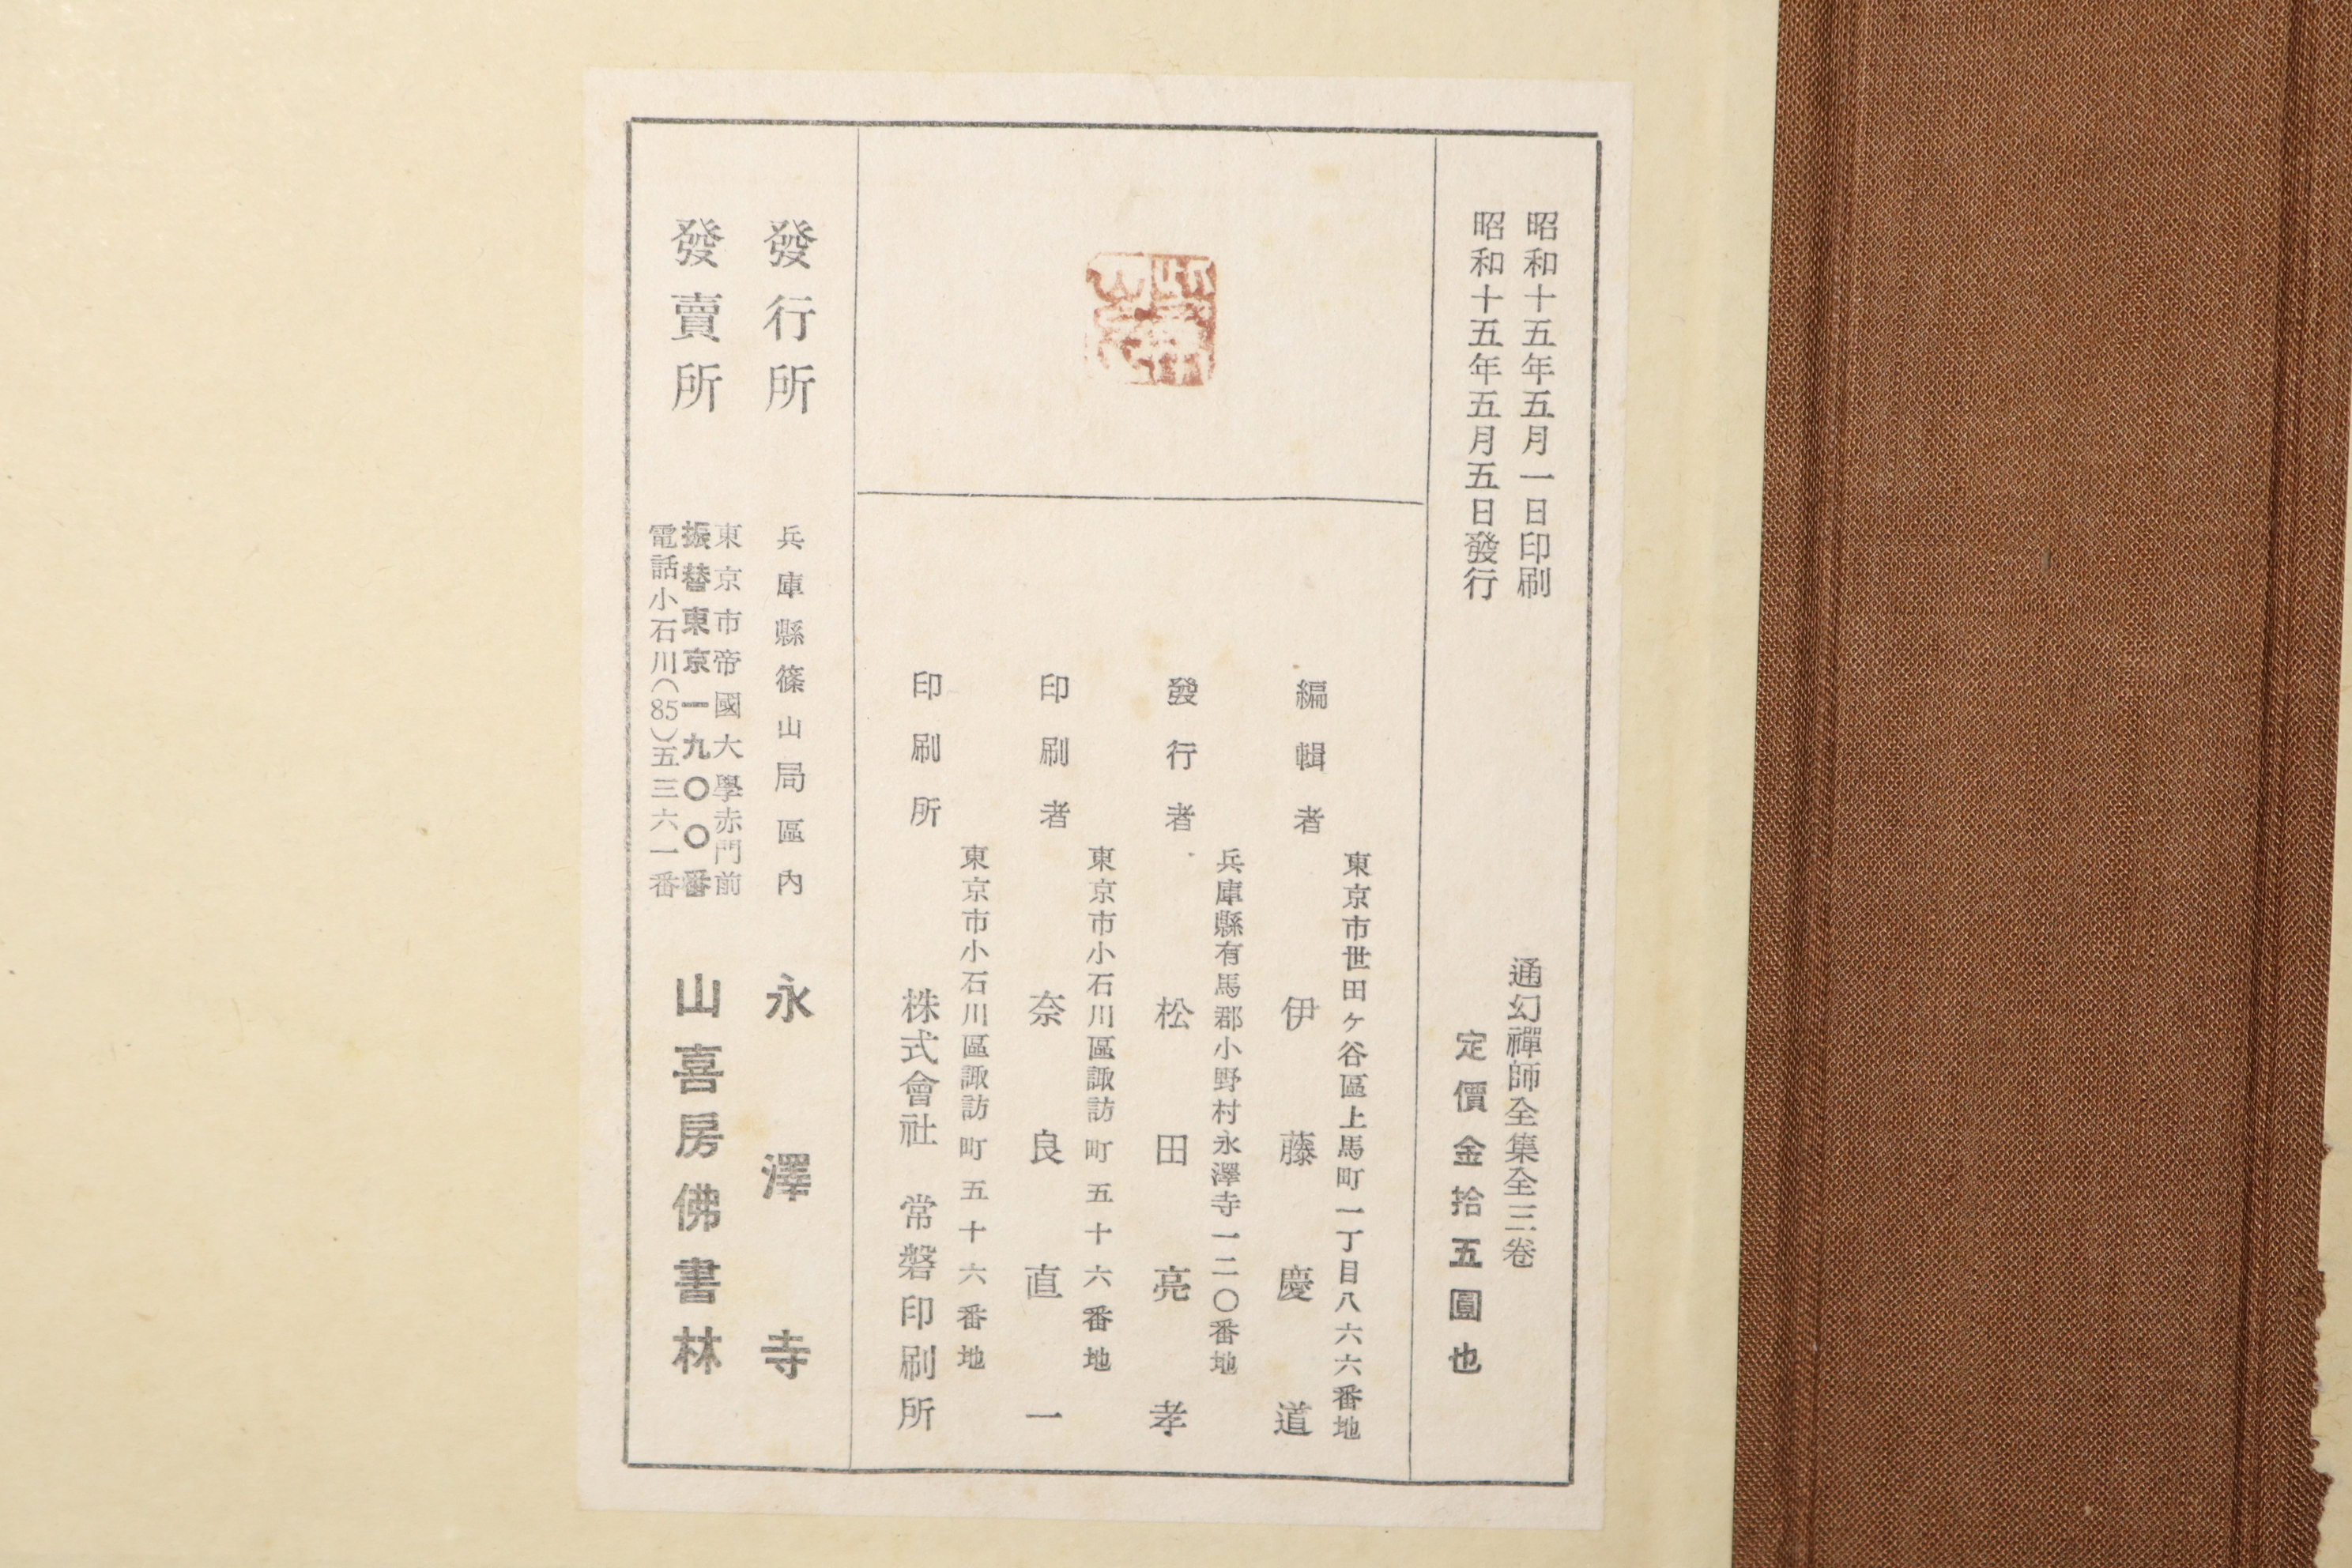 昭和十五年五月一日印刷
昭和十五年五月五日發行
通幻禪師全集全三卷
定價金拾五圓也
東京市世田ケ谷區上馬町一丁目八六六番地
編輯者 伊藤慶道
兵庫縣有馬郡小野村永澤寺一二〇番地
發行者 松田亮孝
東京市小石川區諏訪町五十六番地
印刷者 奈良直一
東京市小石川區諏訪町五十六番地
印刷所 株式會社 常磐印刷所
發行所 兵庫縣篠山局區內 永澤寺
東京市帝國大學赤門前
發賣所 振替東京一九〇〇番 山喜房佛書林
電話小石川(85)五三六一番